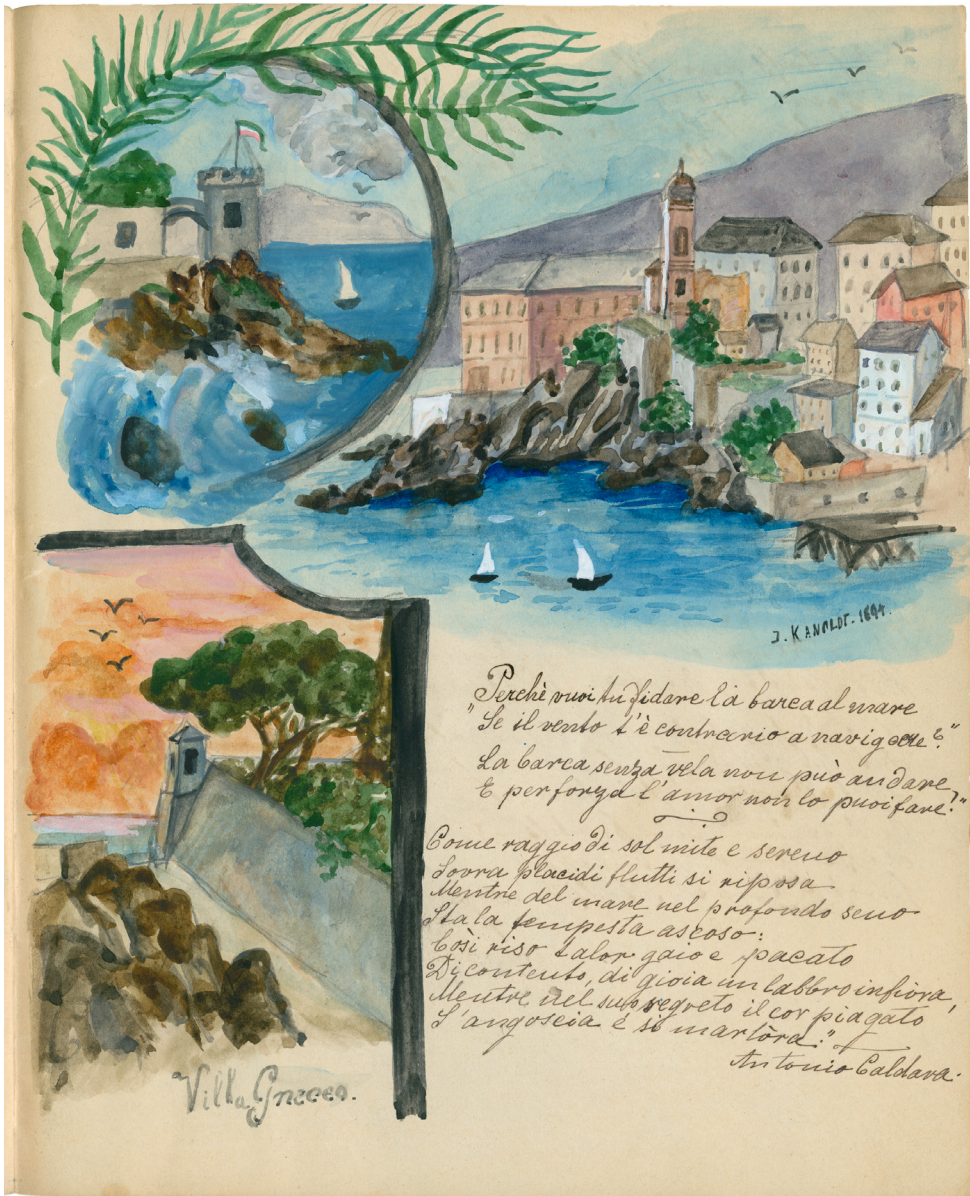 J. KANOLDT. 1894.
Perchè vuoi tu fidare la barca al mare
"Se il vento t'è contrario a navigare?"
La barca senza vela non può andare,
E per forza l'amor non lo puoi fare!"
Come raggio di sol mite e sereno
Sovra placidi flutti si riposa
Mentre del mare nel profondo seno
Sta la tempesta ascoso:
Così riso talor gaio e pacato
Di contento, di gioia un labbro infiora,
Mentre nel suo segreto il cor piagato
S'angoscia e si martòra."
Antonio Caldara.
Villa Gnecco.